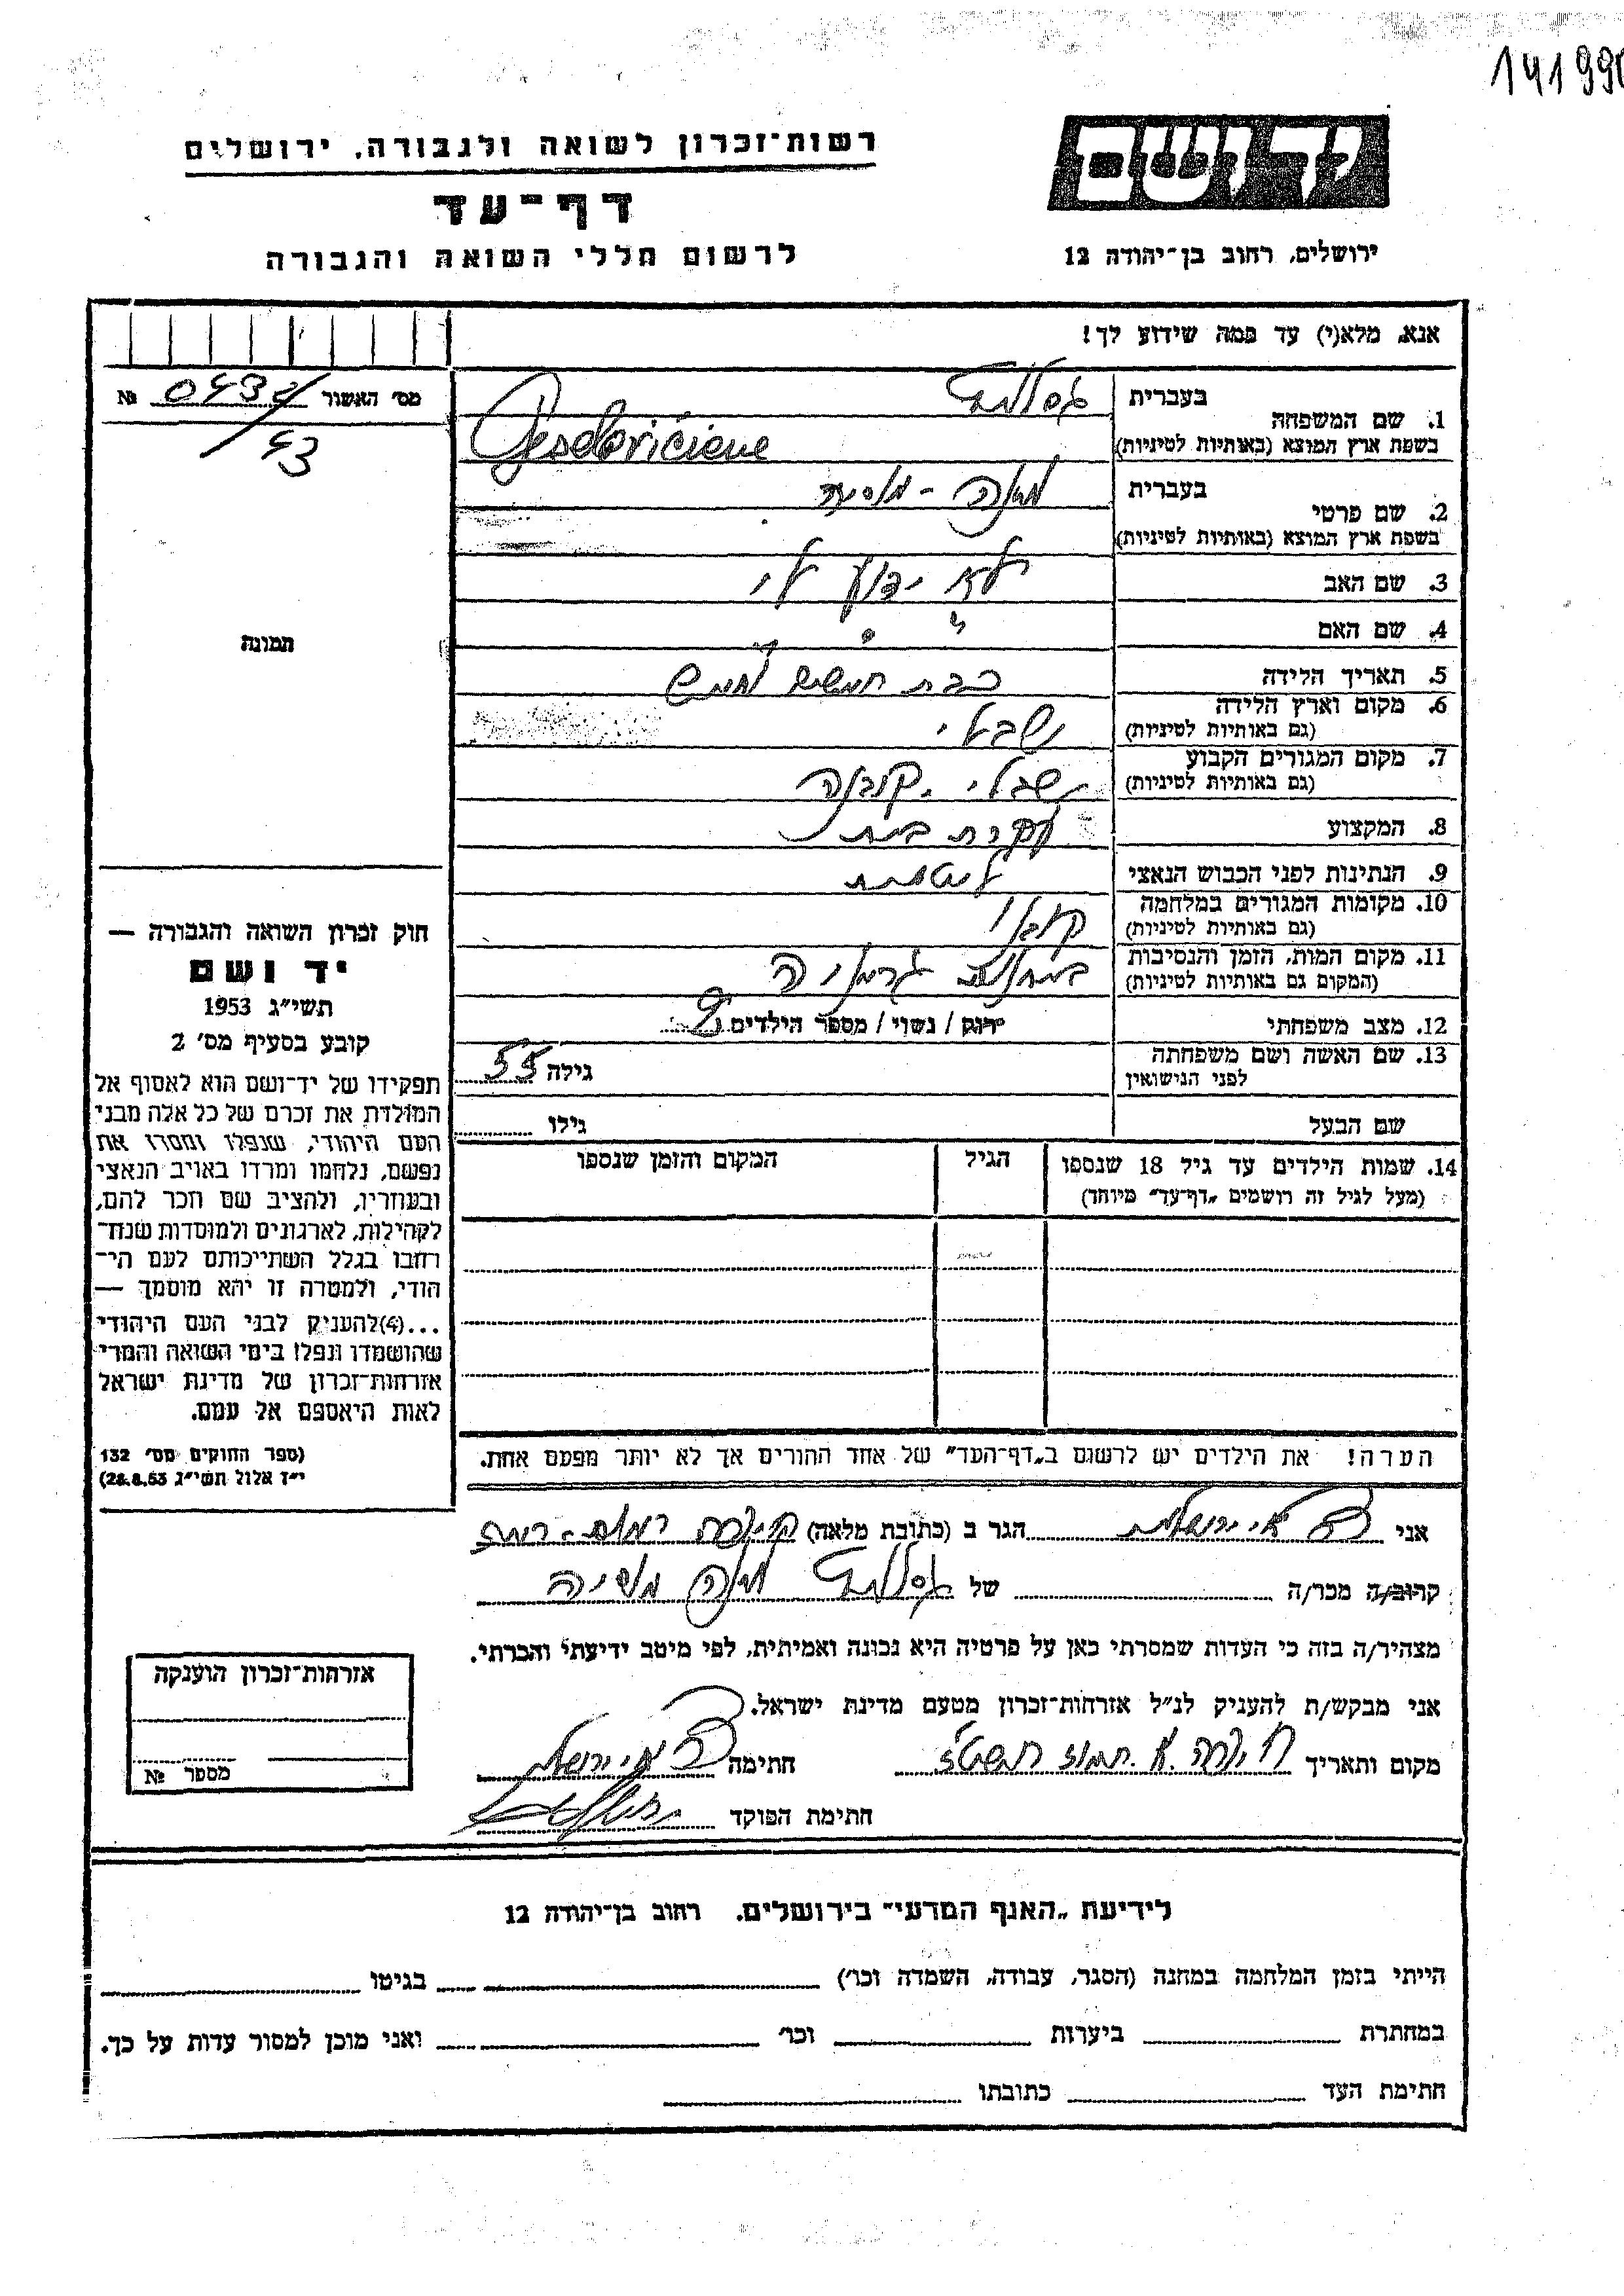 141990
יד ושם
רשות־זכרון לשואה ולגבורה, ירושלים
דף־עד
לרשום חללי השואה והגבורה
ירושלים, רחוב בן־יהודה 12
אנא, מלא(י) עד כמה שידוע לך!
מס' האשור № 0432/43
1. שם המשפחה
בעברית
בשפת ארץ המוצא (באותיות לטיניות) Geselovičiene
2. שם פרטי
בעברית
בשפת ארץ המוצא (באותיות לטיניות)
3. שם האב לא ידוע לי
4. שם האם " " "
5. תאריך הלידה כבת חמשים וחמש
6. מקום וארץ הלידה שבלי
(גם באותיות לטיניות)
7. מקום המגורים הקבוע שבלי. קובנה
(גם באותיות לטיניות)
8. המקצוע עקרת בית
9. הנתינות לפני הכבוש הנאצי ליטאית
10. מקומות המגורים במלחמה קובנו
(גם באותיות לטיניות)
11. מקום המות, הזמן והנסיבות במחנות גרמניה
(המקום גם באותיות לטיניות)
12. מצב משפחתי רווק / נשוי / מספר הילדים
13. שם האשה ושם משפחתה
לפני הנישואין גילה 55
שם הבעל גילו
14. שמות הילדים עד גיל 18 שנספו הגיל המקום והזמן שנספו
(מעל לגיל זה רושמים „דף־עד" מיוחד)
הערה! את הילדים יש לרשום ב„דף־העד" של אחד ההורים אך לא יותר מפעם אחת.
תמונה
חוק זכרון השואה והגבורה —
יד ושם
תשי"ג 1953
קובע בסעיף מס' 2
תפקידו של יד־ושם הוא לאסוף אל
המולדת את זכרם של כל אלה מבני
העם היהודי, שנפלו ומסרו את
נפשם, נלחמו ומרדו באויב הנאצי
ובעוזריו, ולהציב שם וזכר להם,
לקהילות, לארגונים ולמוסדות שנח־
רבו בגלל השתייכותם לעם הי־
הודי, ולמטרה זו יהא מוסמך —
...(4)להעניק לבני העם היהודי
שהושמדו ונפלו בימי השואה והמרי
אזרחות־זכרון של מדינת ישראל
לאות היאספם אל עמם.
(ספר החוקים מס' 132
י"ז אלול תשי"ג 28.8.53)
אני הגר ב (כתובת מלאה)
קרוב/ה מכר/ה של
מצהיר/ה בזה כי העדות שמסרתי כאן על פרטיה היא נכונה ואמיתית, לפי מיטב ידיעתי והכרתי.
אני מבקש/ת להעניק לנ"ל אזרחות־זכרון מטעם מדינת ישראל.
מקום ותאריך חתימה
חתימת הפוקד
אזרחות־זכרון הוענקה
מספר №
לידיעת „האגף המדעי" בירושלים. רחוב בן־יהודה 12
הייתי בזמן המלחמה במחנה (הסגר, עבודה, השמדה וכו') בגיטו
במחתרת ביערות וכו' ואני מוכן למסור עדות על כך.
חתימת העד כתובתו